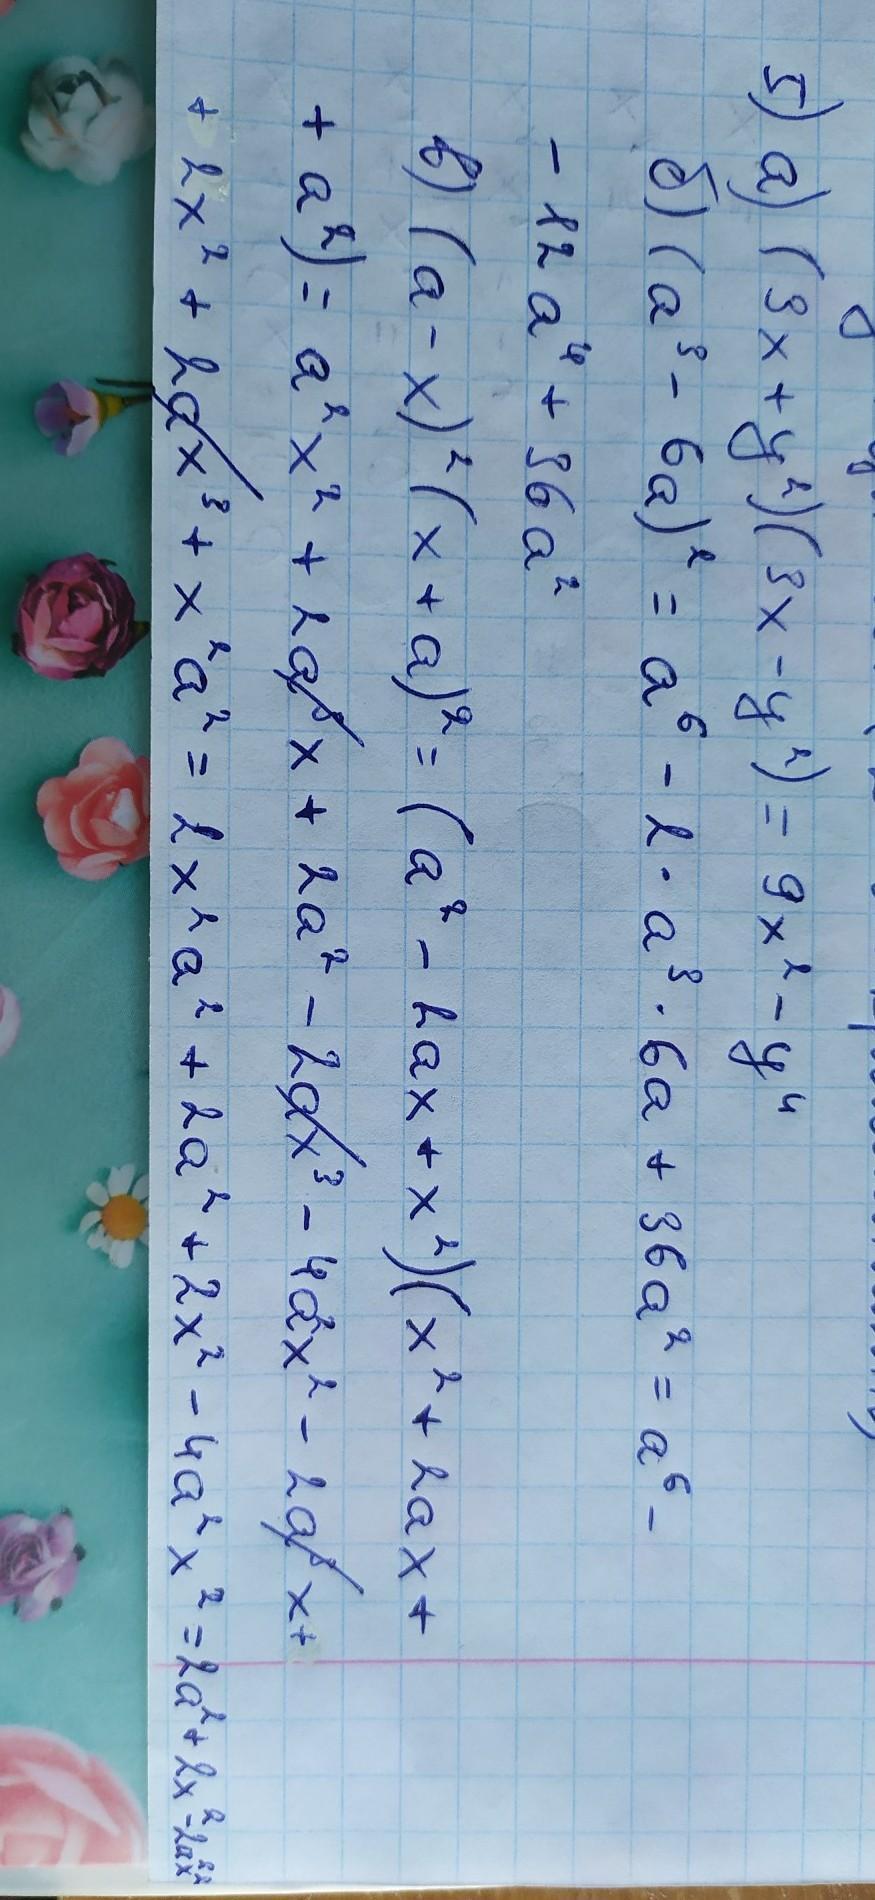 5) а) (3x + y²)(3x - y²) = 9x² - y⁴
б) (a³ - 6a)² = a⁶ - 2 · a³ · 6a + 36a² = a⁶ -
- 12a⁴ + 36a²
в) (a - x)² (x + a)² = (a² - 2ax + x²)(x² + 2ax +
+ a²) = a²x² + 2a³x + 2a² - 2ax³ - 4a²x² - 2a³x +
+ 2x² + 2ax³ + x²a² = 2x²a² + 2a² + 2x² - 4a²x² = 2a² + 2x² - 2a²x²